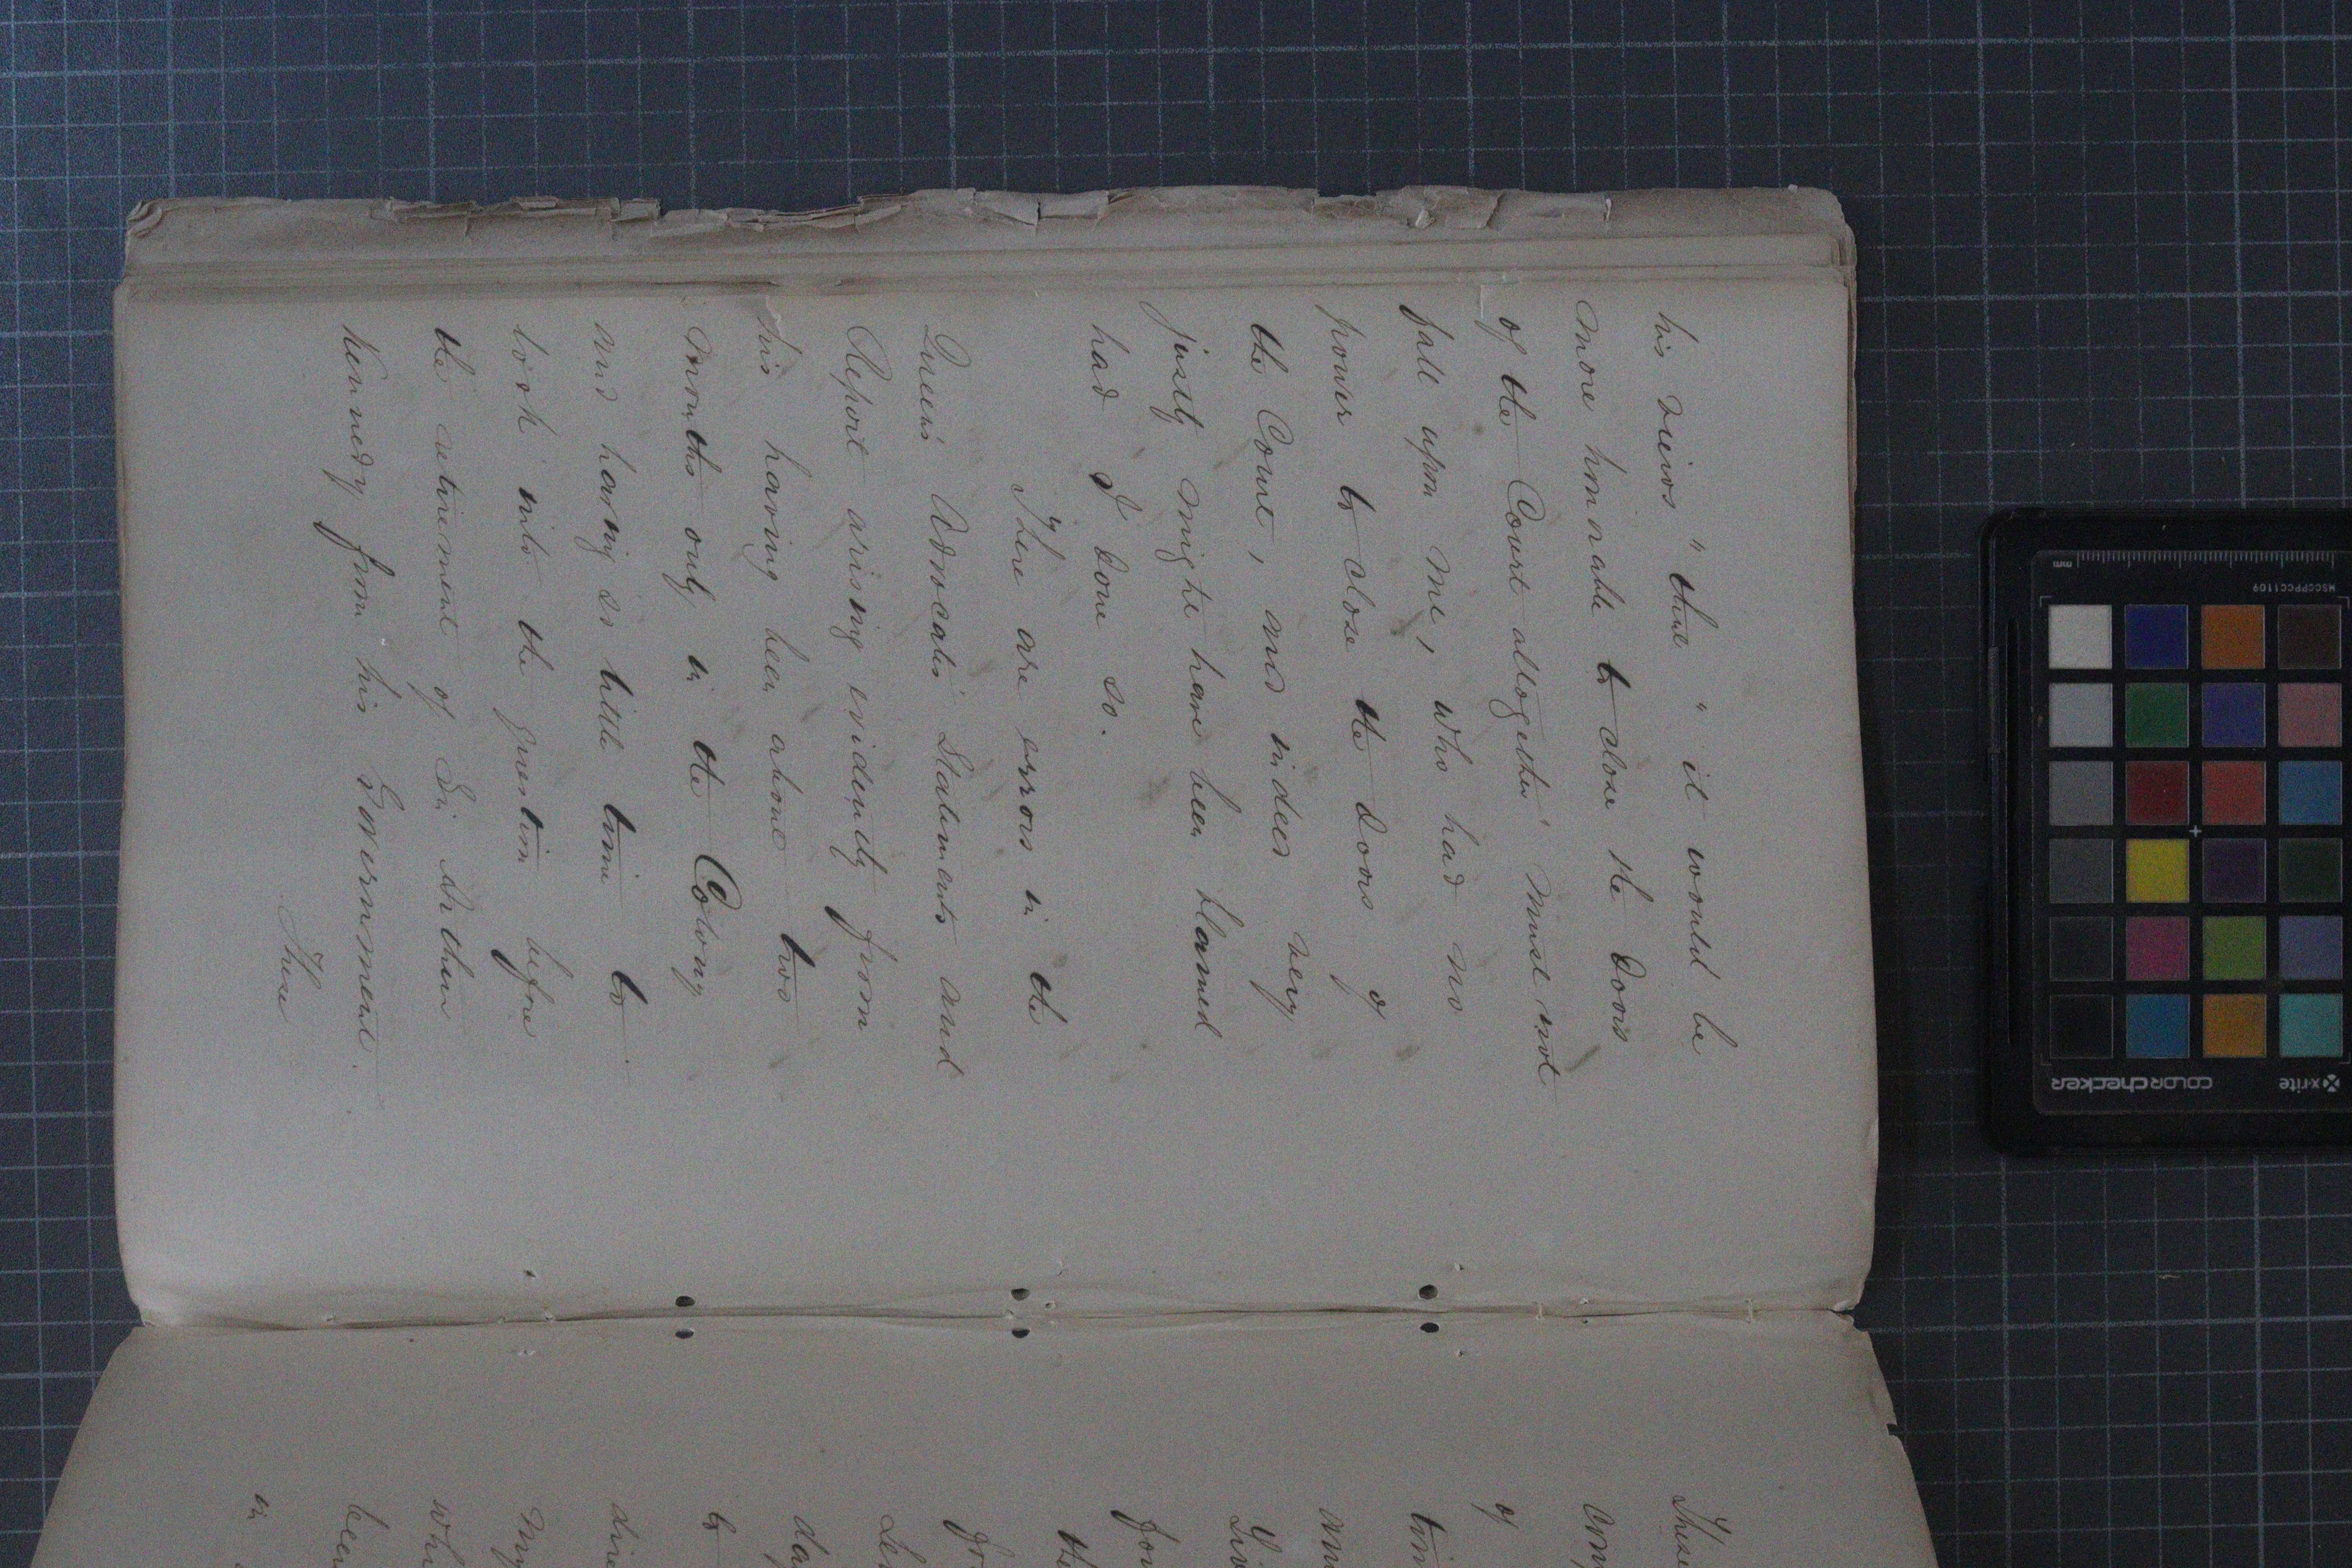 his views " that " it would be
more honorable to close the doors
of the Court altogether' must not
fall upon me, who had no
power to close the doors of
the Court, and indeed very
justly might have been blamed
had I done so.
There are errors in the
Queen's Advocate's Statements and
Report arising evidently from
his having been about two
months only in the Colony
and having so little time to
look into the question before
the retirement of Sir Arthur
Kennedy from his Government.
These
These
of
the
to
in
mm
MSCCPPCC1109
x-rite
colorchecker